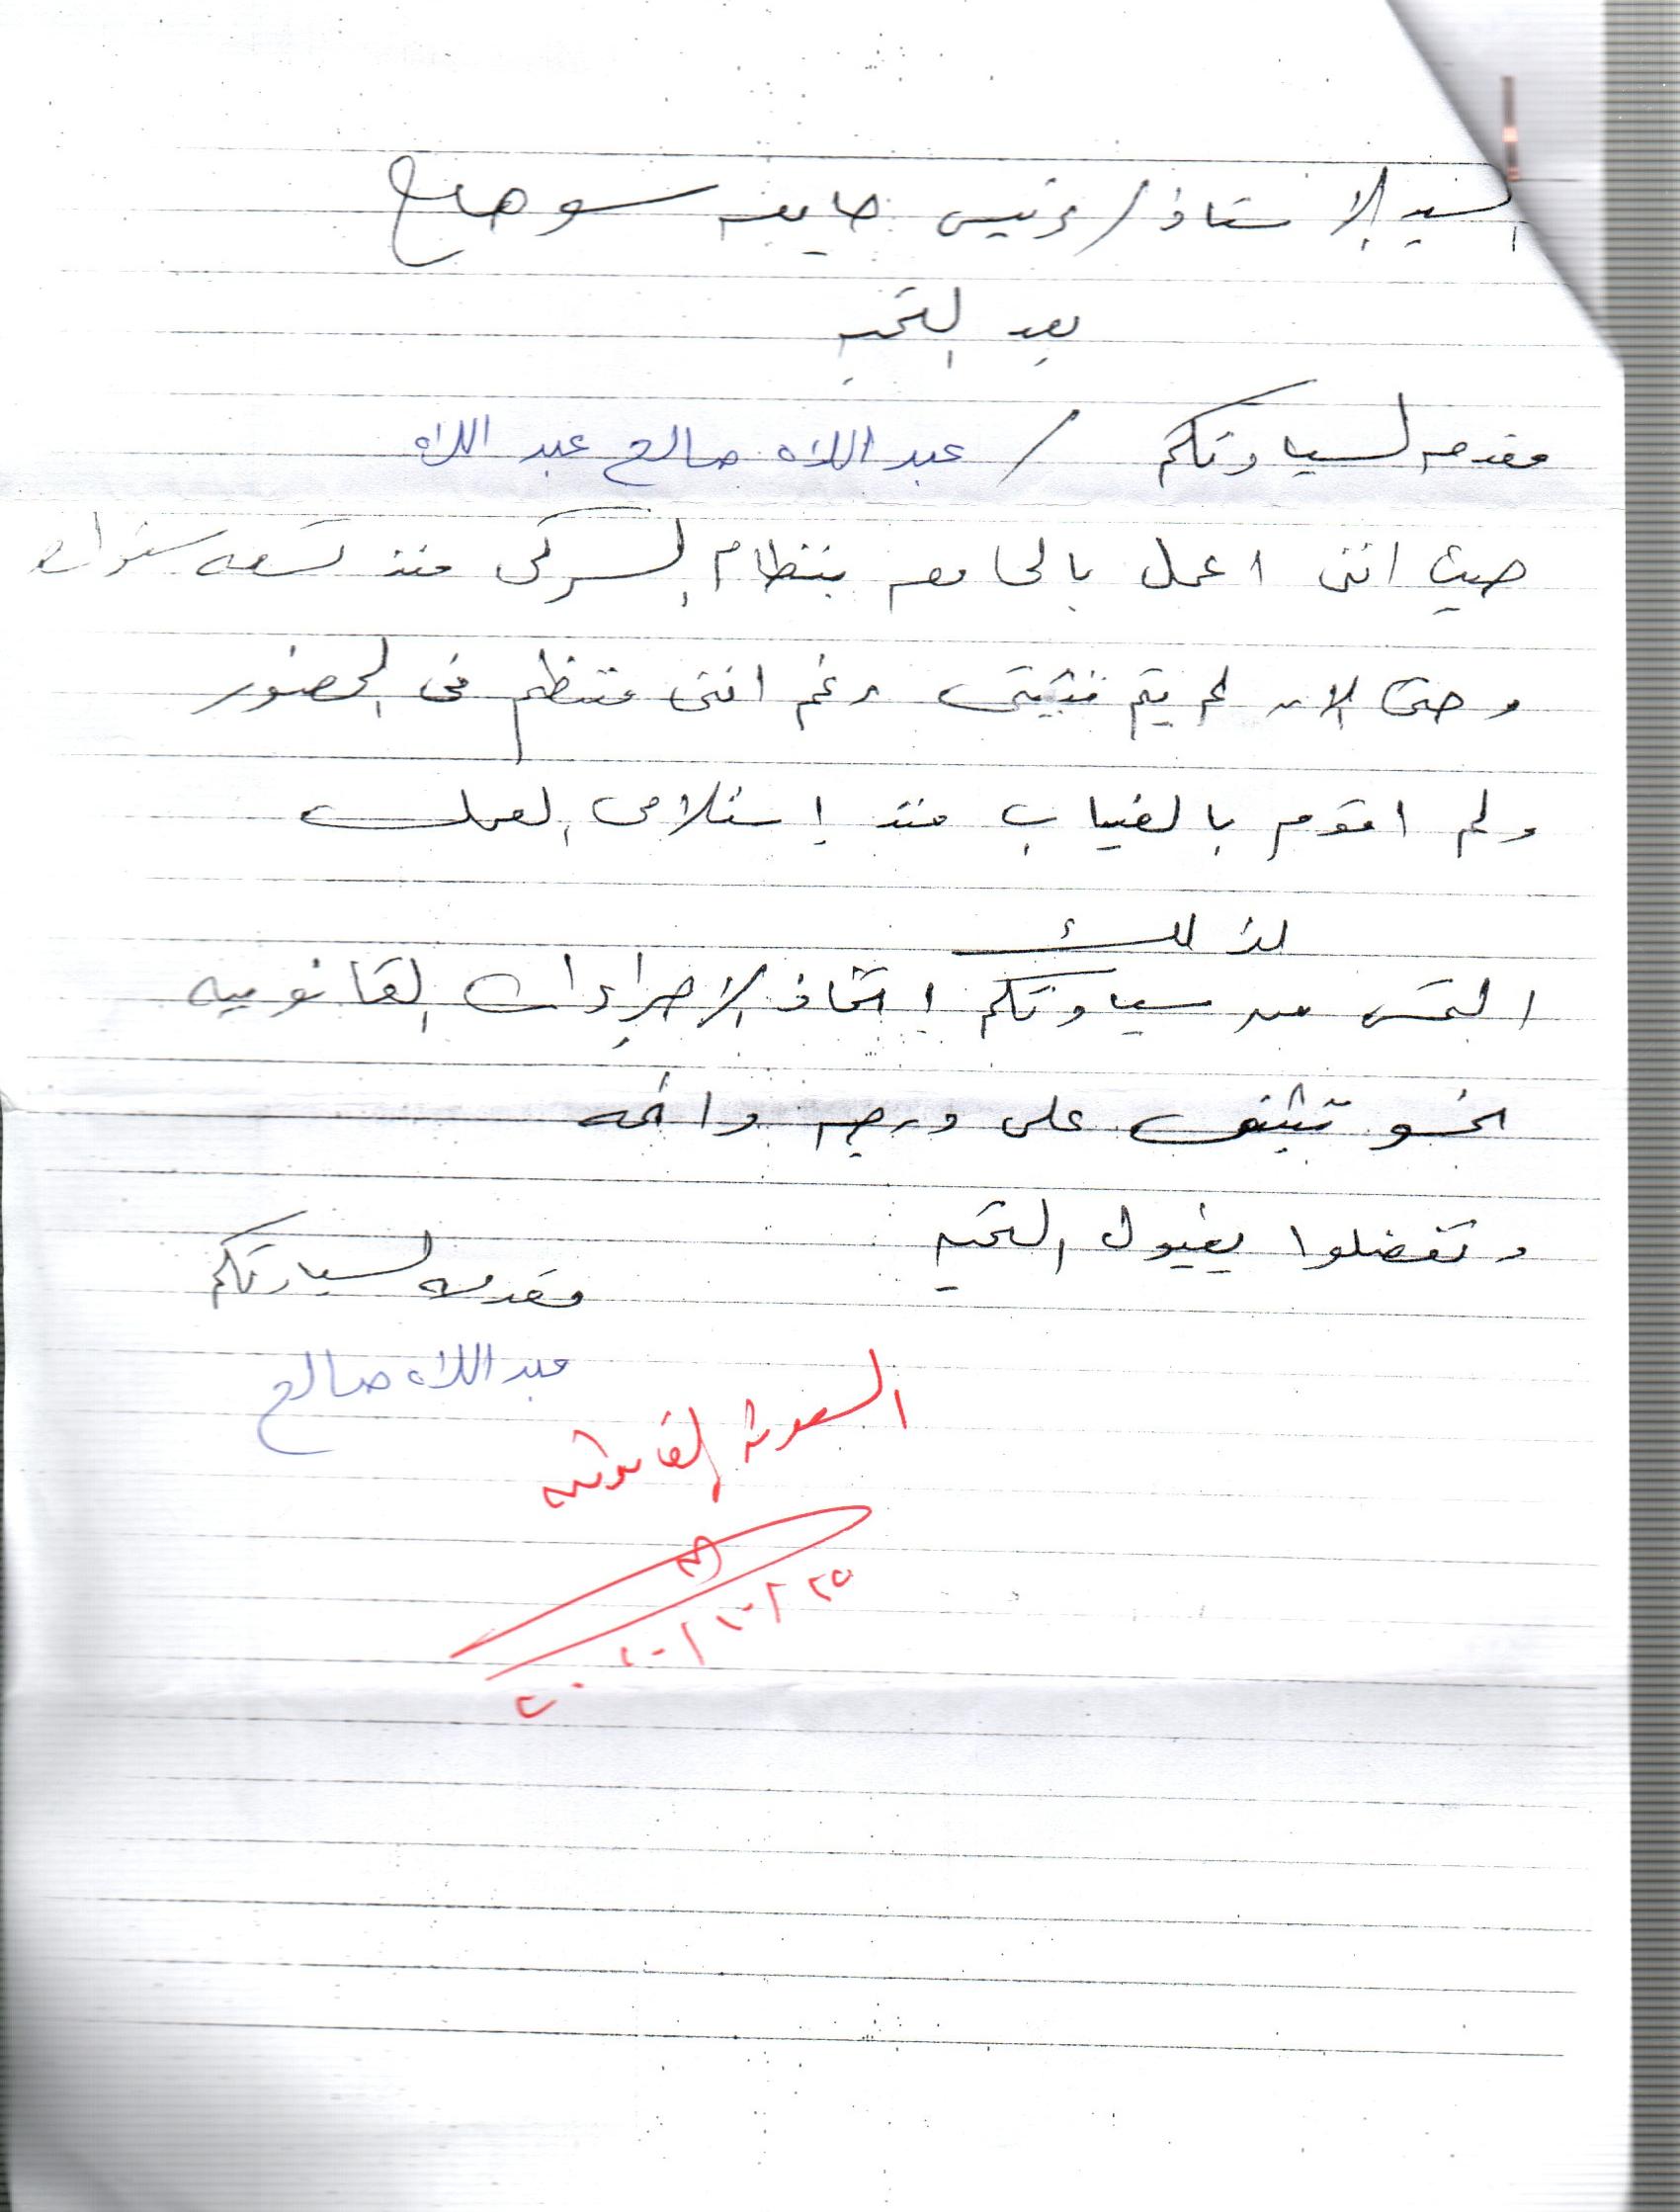 السيد الاستاذ / رئيس جامعه سوهاج
بعد التحيه
مقدمه لسيادتكم / عبد اللاه صالح عبد اللاه
حيث اننى اعمل بالجامعه بنظام السركى منذ تسعه سنوات
وحتى الان لم يتم تثبيتى رغم اننى منتظم فى الحضور
ولم اقوم بالغياب منذ إستلامى العمل
لذلك
التمس من سيادتكم إتخاذ الاجراءات القانونيه
نحو تثبيتى على درجه دائمه
وتفضلوا بقبول التحيه
مقدمه لسيادتكم
عبد اللاه صالح
القانونيه